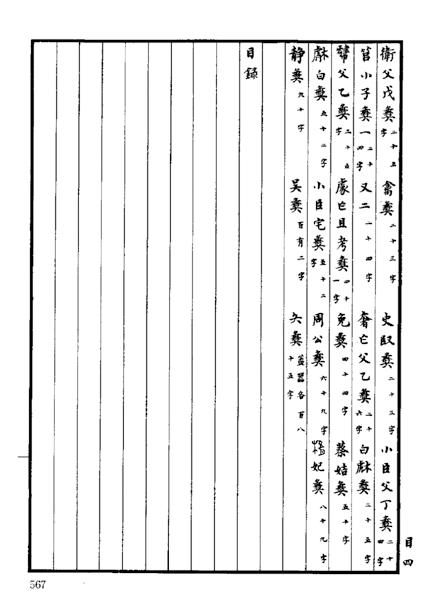 目四
衛父戊彝二十三字 禽彝二十三字 史㕜彝二十三字 小臣父丁彝二十四字
小子彝一二十四字 又二一十四字 奢亡父乙彝二十六字 白彝二十五字
父乙彝二十五字 亡且考彝四十一字 免彝四十四字 蔡姞彝五十字
白彝五十二字 小臣宅彝五十二字 周公彝六十九字 妃彝八十九字
靜彝九十字 吴彝百有二字 夨彝蓋器各百八十五字
目錄
567